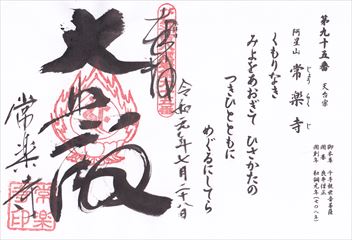 第九十五番 天台宗
阿星山 常楽寺
じょうらくじ
御本尊 千手観世音菩薩
開基 良弁僧正
開創年 和銅元年(七〇八年)
くもりなき
みよをあおぎて ひさかたの
つきひとともに
めぐるにしてら
奉拝
令和元年七月二十八日
大悲殿
常楽寺